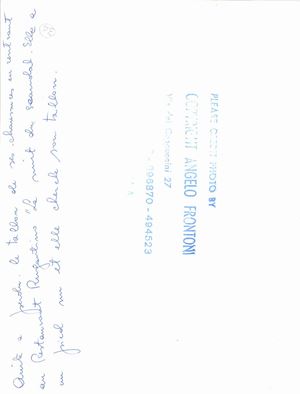 Anita a perdu le talon de ses chaussures en rentrant
au Restaurant Rugantino "la nuit du scandal. Elle a
un pied nu et elle cherche son talon.
PLEASE CREDIT PHOTO BY
COPYRIGHT ANGELO FRONTONI
Via dei 27
898870-494523